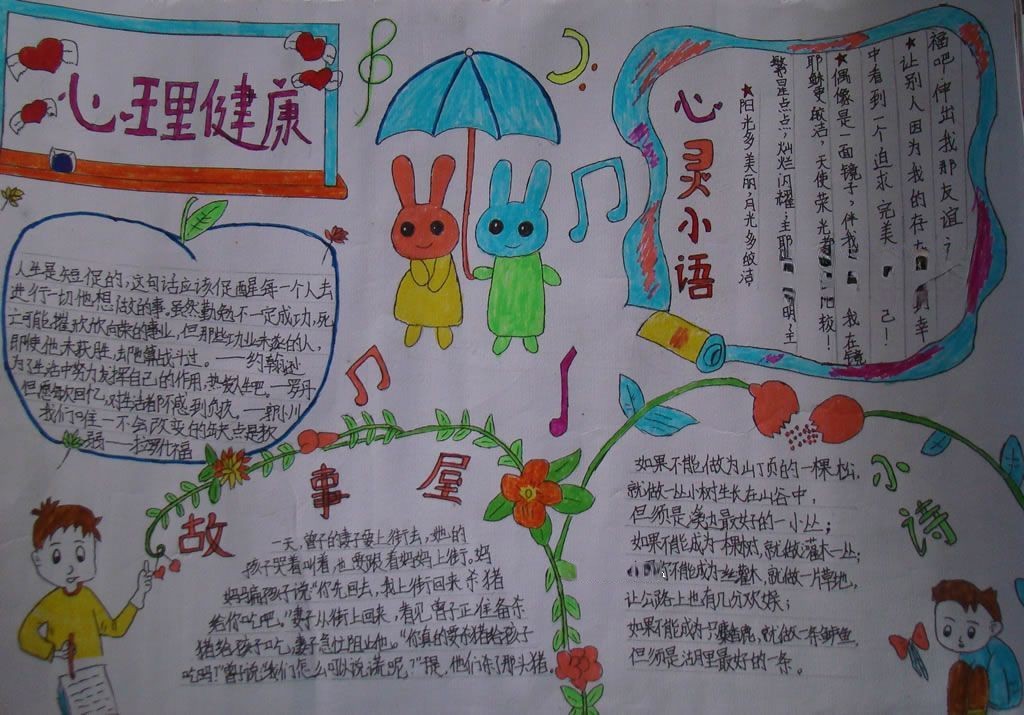 心理健康
人生是短促的,这句话应该促醒每一个人去
进行一切他想做的事。虽然勤勉不一定成功,死
亡可能摧折欣欣向荣的事业,但那些功业未遂的人,
即使他未获胜,去陪算战斗过。——约翰逊
为了生活中努力发挥自己的作用,热爱人生吧。—罗丹
但愿每次回忆,对生活都不感到负疚。—郭小川
我们唯一不会改变的缺点是软
弱——拉罗什福
心灵小语
福吧,伸出我那友谊之
★让别人因为我的存
中看到一个追求完美 己!
★偶像是一面镜子,伴我 我在镜
耶稣更皎洁,天使荣光 !
繁星点点,灿烂闪耀;主耶 明;主
★阳光多美丽,月光多皎洁
故事屋
一天,曾子的妻子要上街去,她的
孩子哭着叫着也要跟着妈妈上街。妈
妈妈骗孩子说“你先回去,我上街回来杀猪
给你吃吧。”妻子从街上回来,看见曾子正准备杀
猪给孩子吃,妻子急忙阻止他。“你真的要杀猪给孩子
吃吗?”曾子说“我们怎么可以说谎呢?”于是,他们杀了那头猪.
小诗
如果不能做为山顶的一棵松,
就做一丛小树生长在山谷中,
但须是溪边最好的一小丛;
如果不能成为一棵树,就做灌木一丛;
不能成为丛灌木,就做一片草地,
让公路上也有几分欢娱;
如果不能成为只麝香鹿,就做一条鲈鱼,
但须是湖里最好的一条。